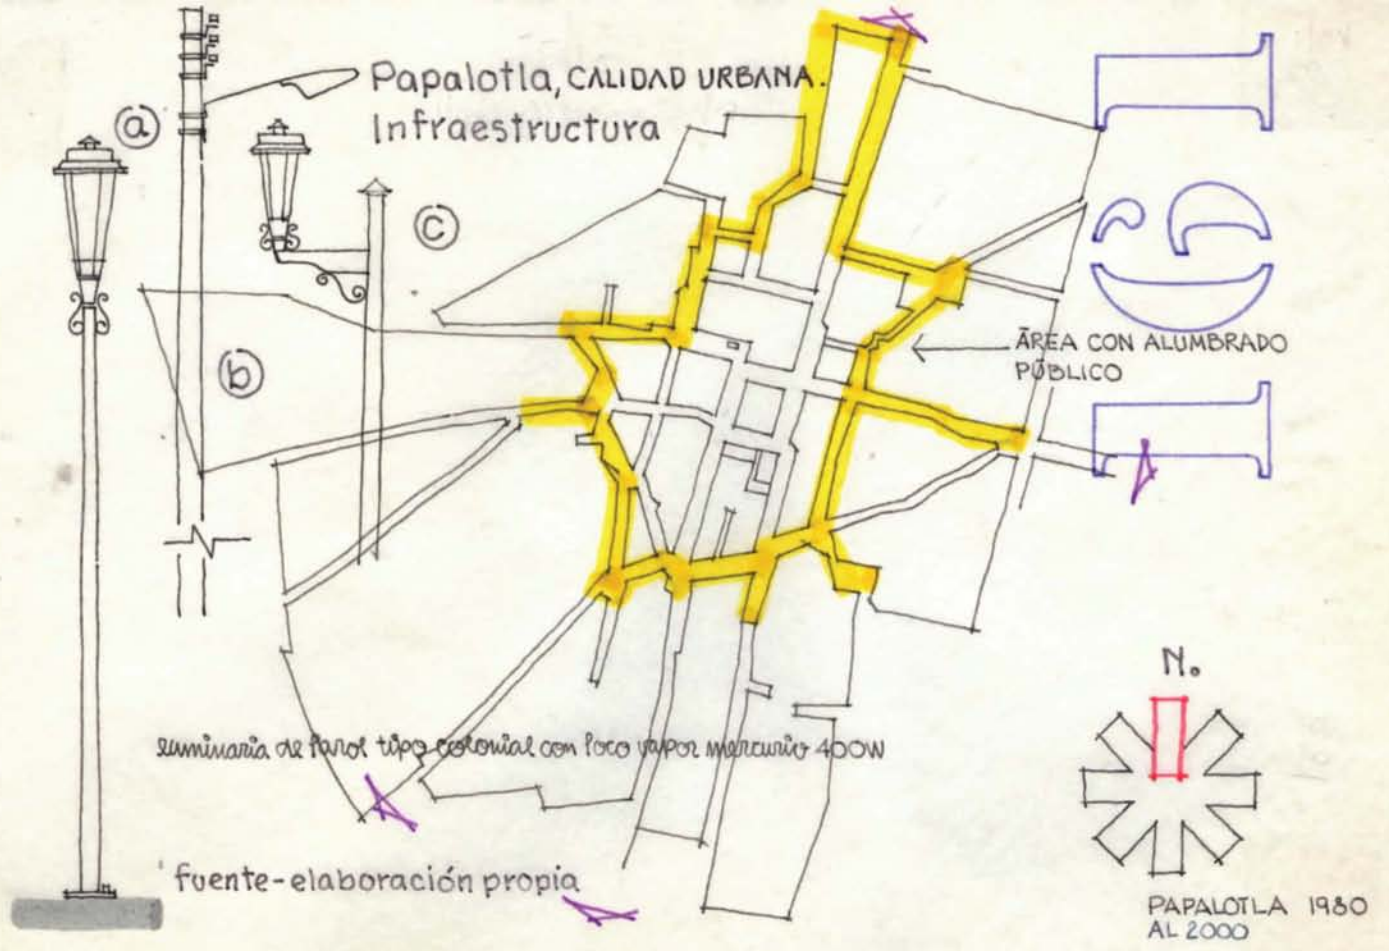 Papalotla, CALIDAD URBANA.
Infraestructura
a
c
b
161
ÁREA CON ALUMBRADO
PÚBLICO
N.
luminaria de farol tipo colonial con foco vapor mercurio 400W
fuente-elaboración propia
PAPALOTLA 1980
AL 2000